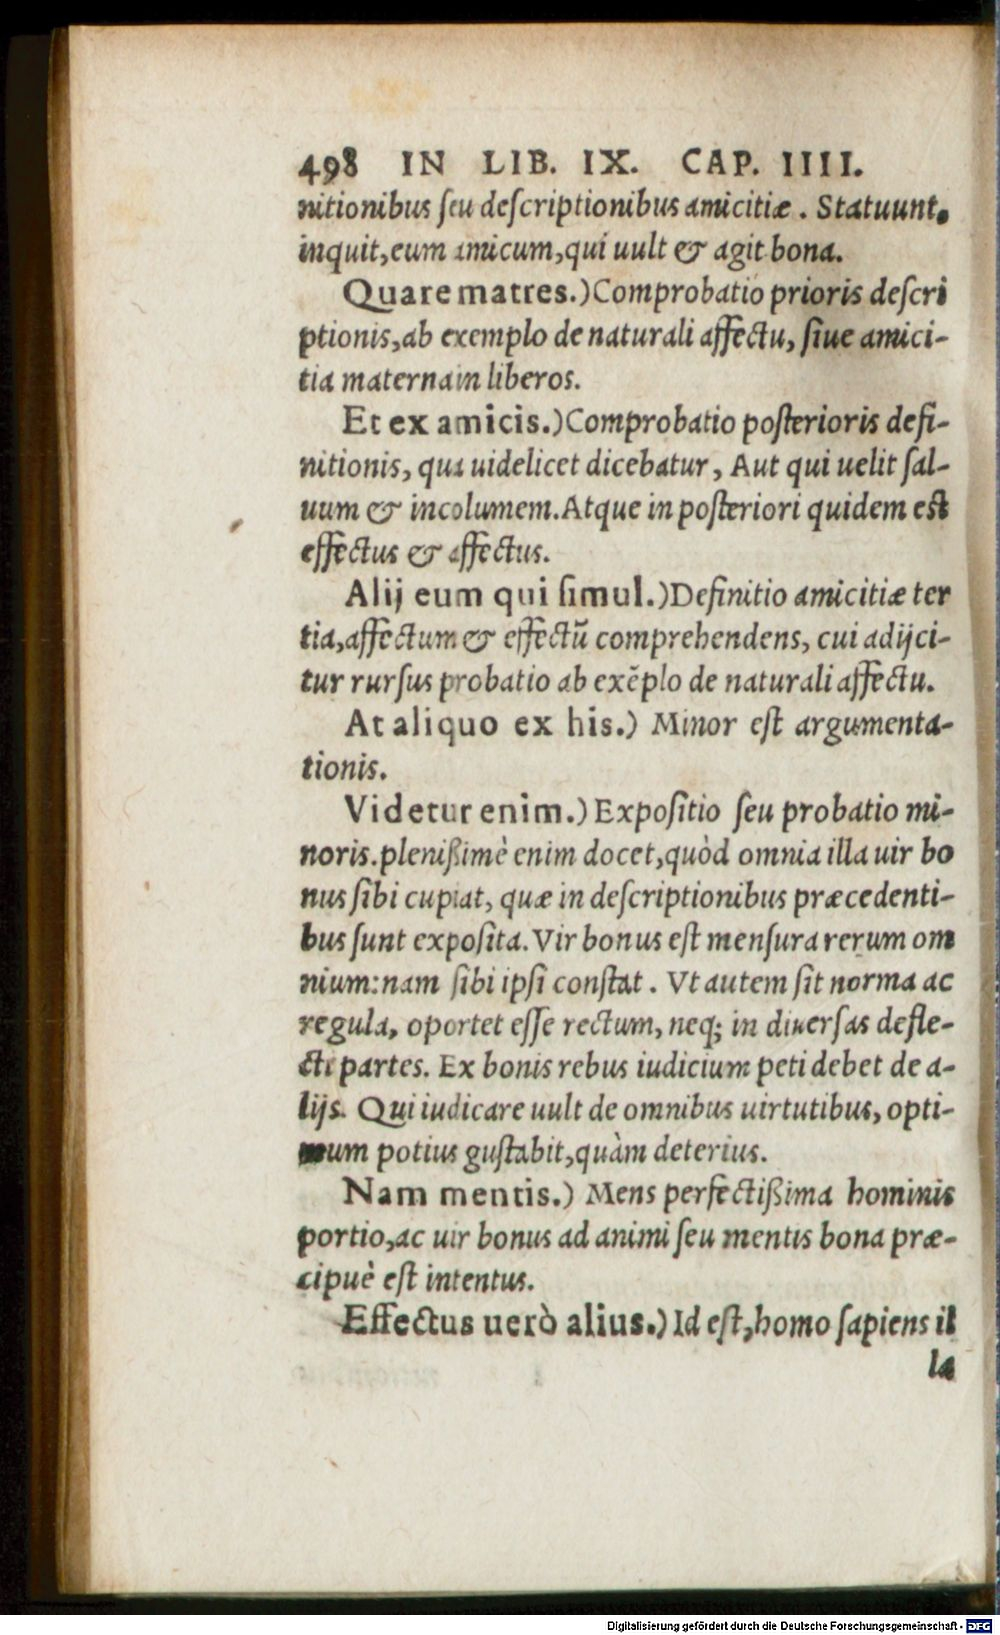 498 IN LIB. IX. CAP. IIII.
nitionibus ſeu deſcriptionibus amicitiæ. Statuunt,
inquit, eum amicum, qui uult & agit bona.
Quare matres.) Comprobatio prioris deſcri
ptionis, ab exemplo de naturali affectu, ſiue amici-
tia maternain liberos.
Et ex amicis.) Comprobatio poſterioris defi-
nitionis, qua uidelicet dicebatur, Aut qui uelit ſal-
uum & incolumem. Atque in poſteriori quidem est
effectus & affectus.
Alij eum qui ſimul.) Definitio amicitiæ ter
tia, affectum & effectũ comprehendens, cui adijci-
tur rurſus probatio ab exẽplo de naturali affectu.
At aliquo ex his.) Minor eſt argumenta-
tionis.
Videtur enim.) Expoſitio ſeu probatio mi-
noris. pleniſsimè enim docet, quòd omnia illa uir bo
nus ſibi cupiat, quæ in deſcriptionibus præcedenti-
bus ſunt expoſita. Vir bonus eſt menſura rerum om
nium: nam ſibi ipſi conſtat. Vt autem ſit norma ac
regula, oportet eſſe rectum, neq; in diuerſas defle-
cti partes. Ex bonis rebus iudicium peti debet de a-
lijs. Qui iudicare uult de omnibus uirtutibus, opti-
mum potius guſtabit, quàm deterius.
Nam mentis.) Mens perfectiſsima hominis
portio, ac uir bonus ad animi ſeu mentis bona præ-
cipuè eſt intentus.
Effectus uerò alius.) Id eſt, homo ſapiens il
la
Digitalisierung gefördert durch die Deutsche Forschungsgemeinschaft - DFG